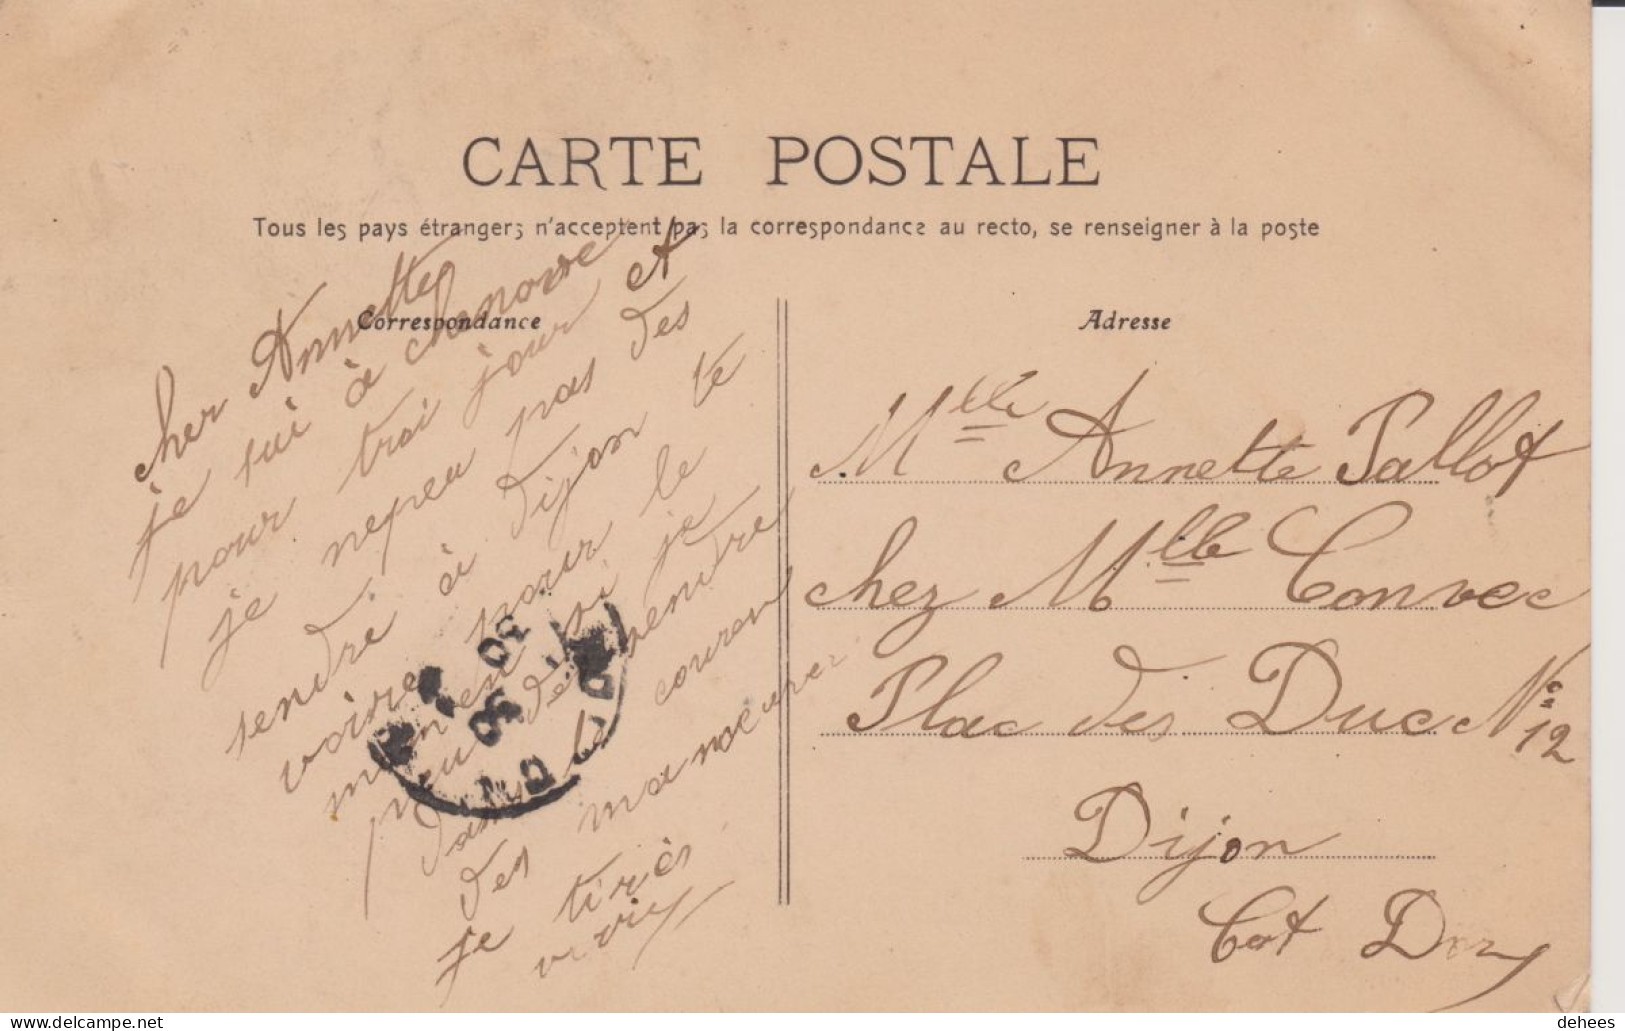 CARTE POSTALE
Tous les pays étrangers n'acceptent pas la correspondance au recto, se renseigner à la poste
Correspondance
cher Annette
je sui à chenove
pour troi jour et
je nepeu pas des
sendre à dijon te
voire pour le
moment si je
peu desendre
dans le couron
des
je tirès
Adresse
Mlle Annette Pallot
chez Mlle Convec
Plac des Duc N° 12
Dijon
Cot Dor
delcampe.net
dehees